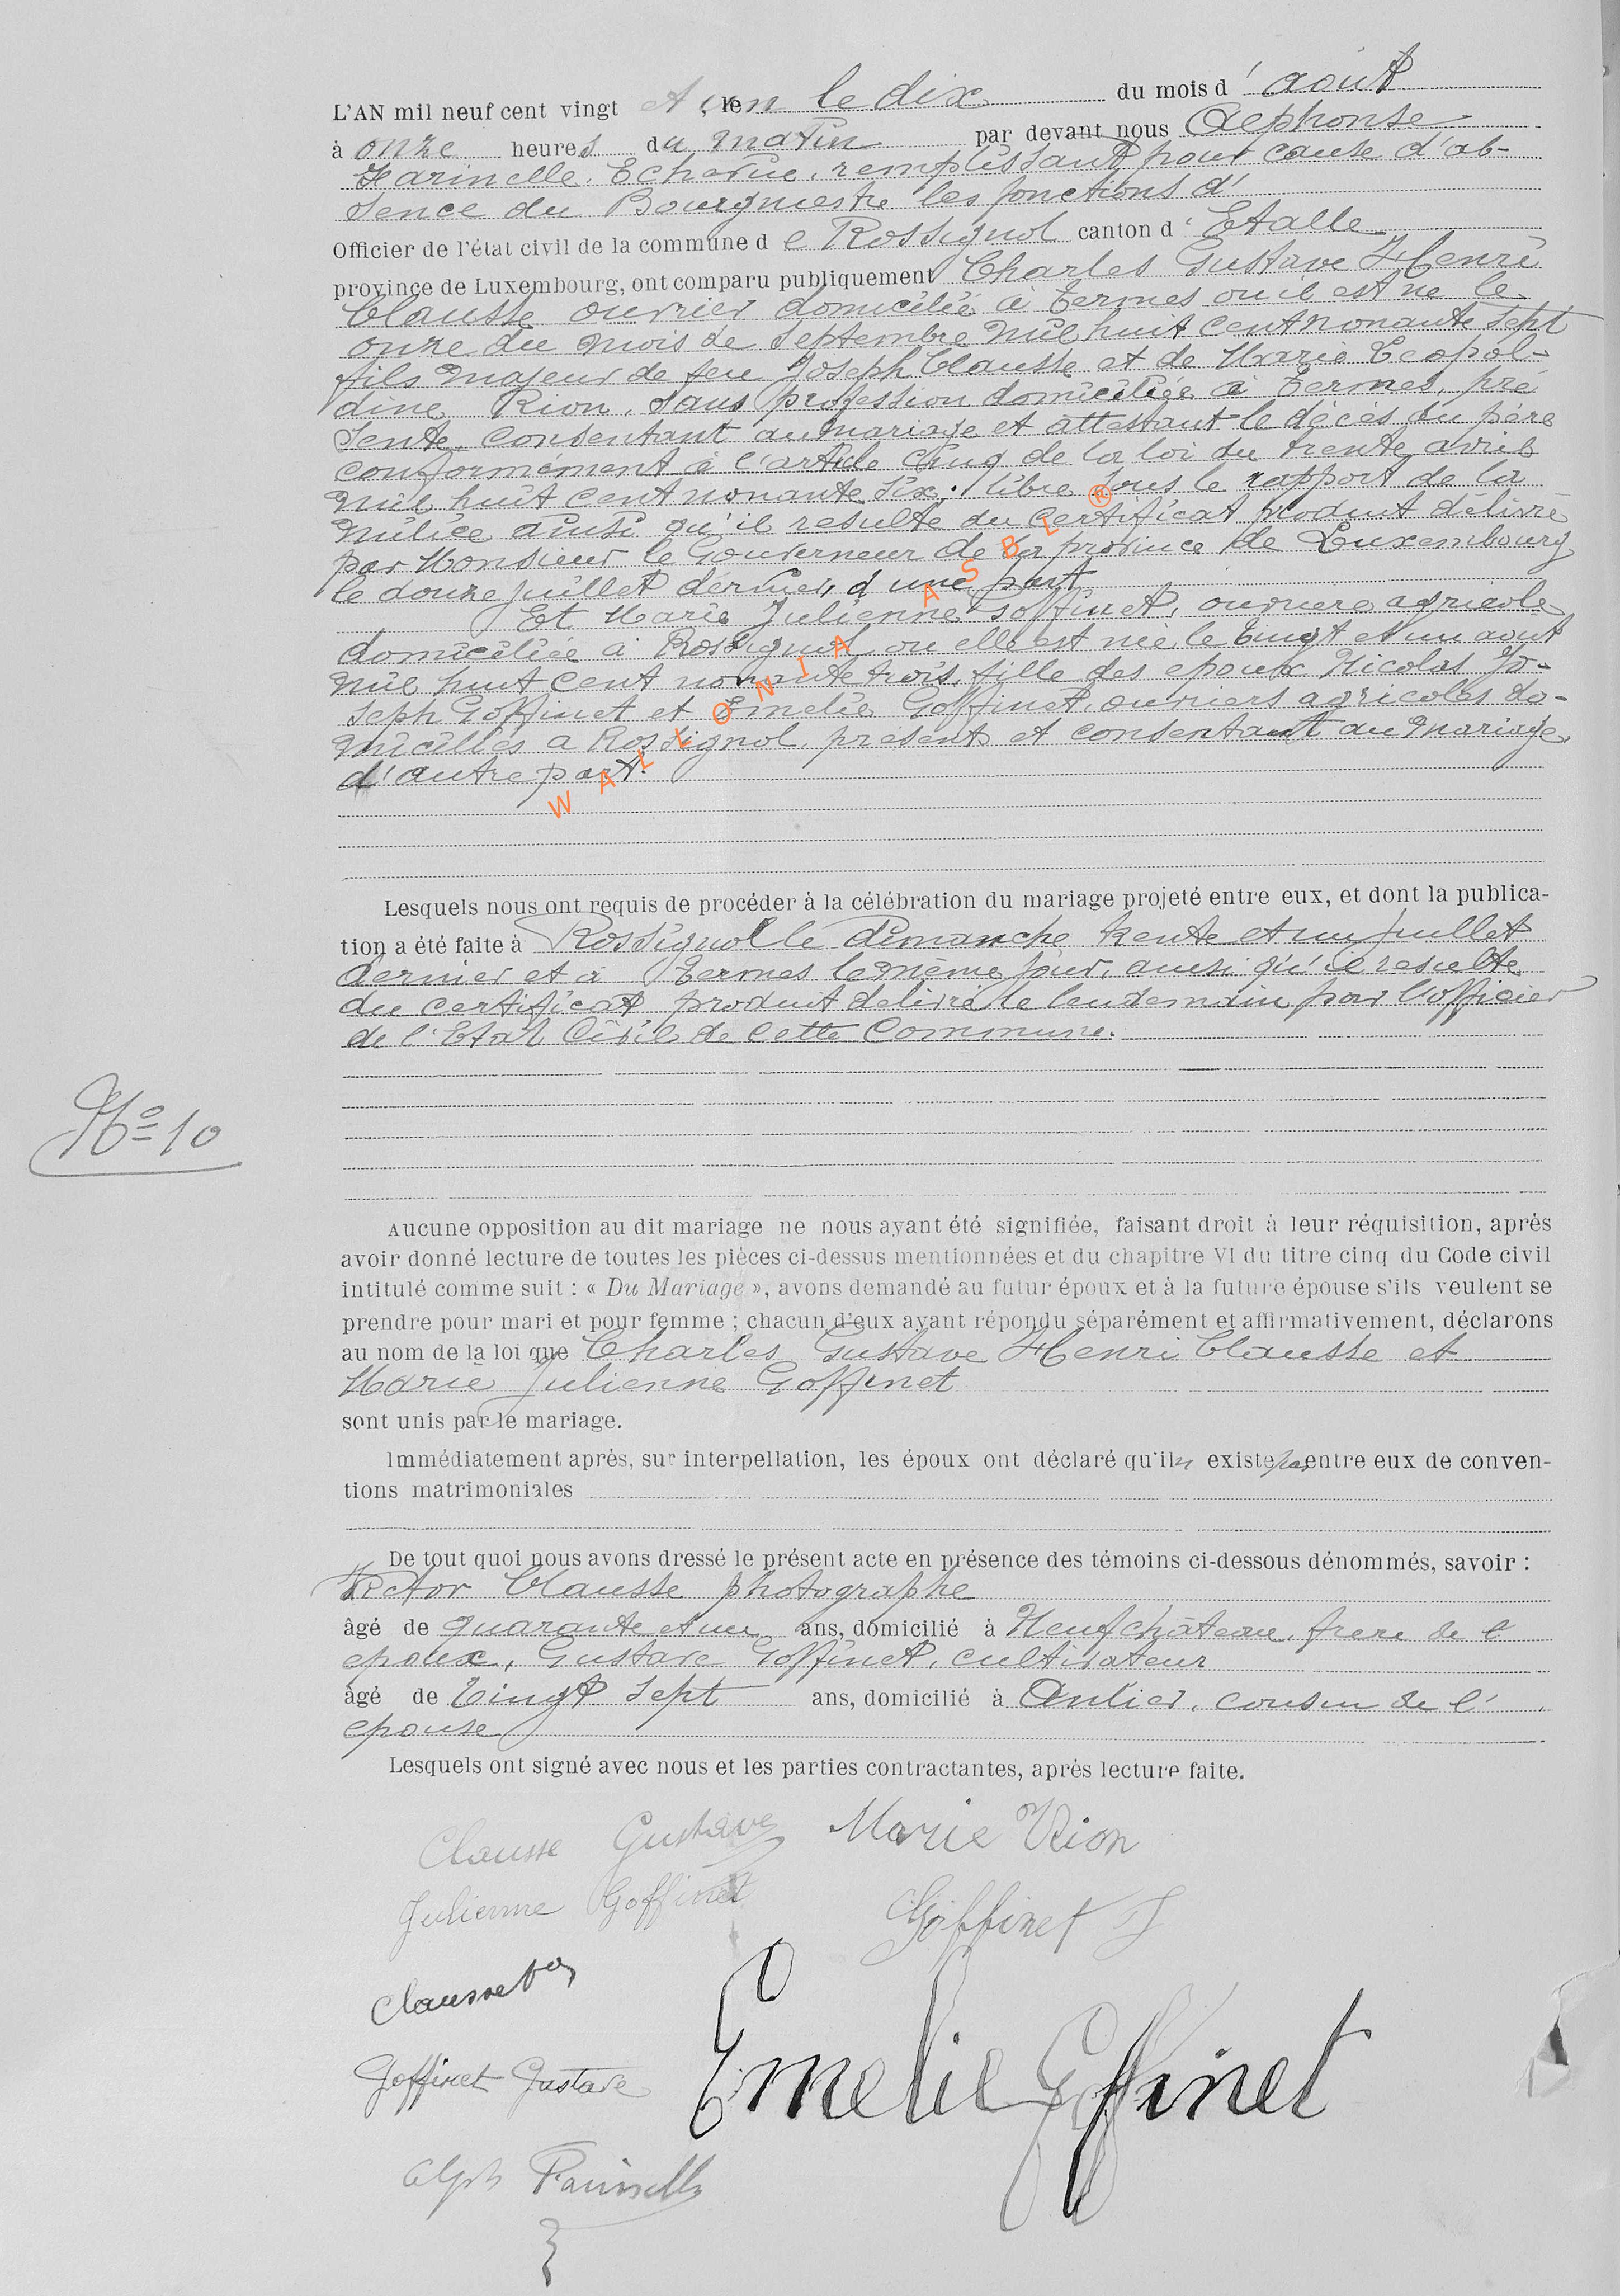 L'AN mil neuf cent vingt et un le dix du mois d' août
à onze heures du matin par devant nous Alphonse
Farinelle, Echevin, remplissant pour cause d'ab-
sence du Bourgmestre les fonctions d'
Officier de l'état civil de la commune de Rossignol canton d' Etalle
province de Luxembourg, ont comparu publiquement Charles Gustave Henri
Clausse ouvrier domicilié à Termes où il est né le
onze du mois de Septembre mil huit cent nonante sept
fils majeur de feu Joseph Clausse et de Marie Léopol-
dine Rion, sans profession domiciliée à Termes, pré
sente, consentant au mariage et attestant le décès du père
conformément à l'article cinq de la loi du trente avril
mil huit cent nonante six; libre sous le rapport de la
milice ainsi qu'il resulte du certificat produit délivré
par Monsieur le Gouverneur de la province de Luxembourg
le douze juillet dernier, d'une part
Et Marie Julienne Goffinet, ouvriere agricole
domiciliée à Rossignol, ou elle est née le vingt et un août
mil huit cent nonante trois, fille des epoux Nicolas Jo-
seph Goffinet et Emelie Goffinet, ouvriers agricoles do-
miciliés a Rossignol, présents et consentant au mariage
d'autre part.
WALLONIA ASBL ®
Lesquels nous ont requis de procéder à la célébration du mariage projeté entre eux, et dont la publica-
tion a été faite à Rossignol le dimanche trente et un juillet
dernier et à Termes le même jour, ainsi qu'il resulte
du certificat produit delivré le lendemain par l'officier
de l'Etat Civil de cette Commune.
No 10
Aucune opposition au dit mariage ne nous ayant été signifiée, faisant droit à leur réquisition, après
avoir donné lecture de toutes les pièces ci-dessus mentionnées et du chapitre VI du titre cinq du Code civil
intitulé comme suit : « Du Mariage », avons demandé au futur époux et à la future épouse s'ils veulent se
prendre pour mari et pour femme ; chacun d'eux ayant répondu séparément et affirmativement, déclarons
au nom de la loi que Charles Gustave Henri Clausse et
Marie Julienne Goffinet
sont unis par le mariage.
Immédiatement après, sur interpellation, les époux ont déclaré qu'il n' existe pas entre eux de conven-
tions matrimoniales
De tout quoi nous avons dressé le présent acte en présence des témoins ci-dessous dénommés, savoir :
Victor Clausse photographe
âgé de quarante et un ans, domicilié à Neufchâteau, frere de l'
epoux, Gustave Goffinet, cultivateur
âgé de vingt sept ans, domicilié à Anlier, cousin de l'
epouse
Lesquels ont signé avec nous et les parties contractantes, après lecture faite.
Clausse Gustave Marie Rion
Julienne Goffinet Goffinet J
Clausse Vor
Goffinet Gustave Emelie Goffinet
Alph Farinelle